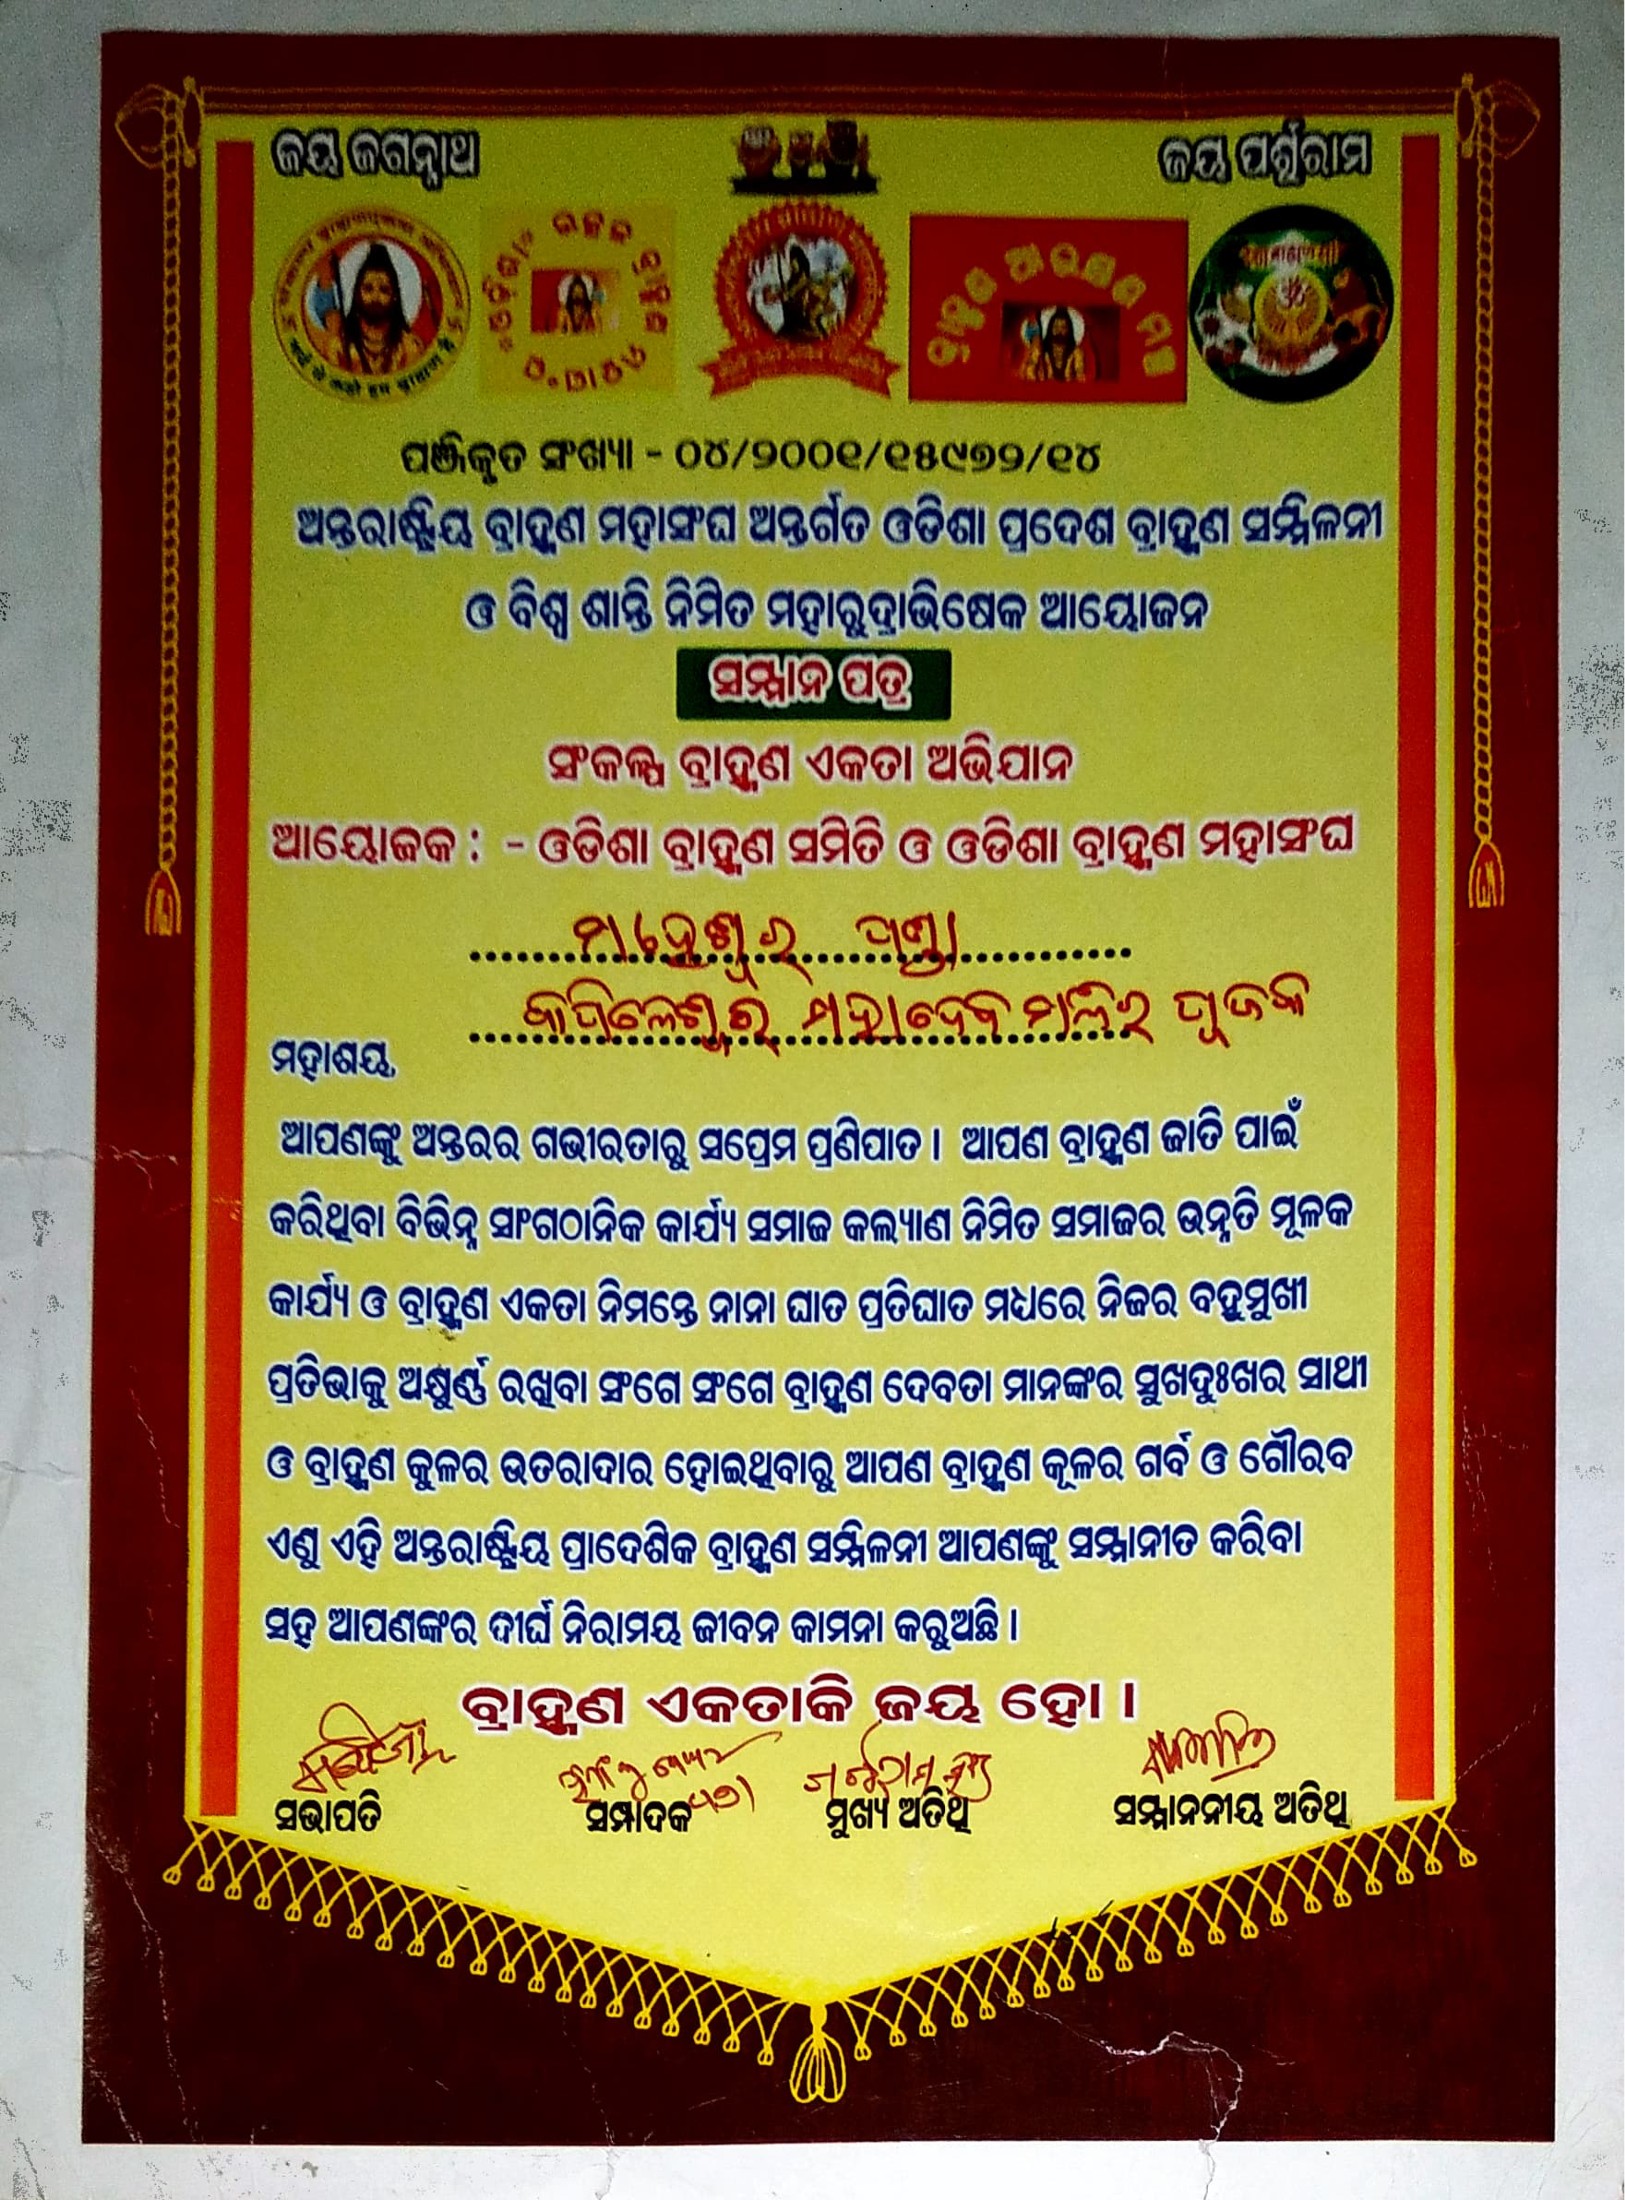 ଜୟ ଜଗନ୍ନାଥ
ଜୟ ପର୍ଶୁରାମ
ପଞ୍ଜିକୃତ ସଂଖ୍ୟା - ୦୪/୨୦୦୧/୧୫୯୭୨/୧୪
ଅନ୍ତରାଷ୍ଟ୍ରିୟ ବ୍ରାହ୍ମଣ ମହାସଂଘ ଅନ୍ତର୍ଗତ ଓଡିଶା ପ୍ରଦେଶ ବ୍ରାହ୍ମଣ ସମ୍ମିଳନୀ
ଓ ବିଶ୍ୱ ଶାନ୍ତି ନିମିତ ମହାରୁଦ୍ରାଭିଷେକ ଆୟୋଜନ
ସମ୍ମାନ ପତ୍ର
ସଂକଳ୍ପ ବ୍ରାହ୍ମଣ ଏକତା ଅଭିଯାନ
ଆୟୋଜକ : - ଓଡିଶା ବ୍ରାହ୍ମଣ ସମିତି ଓ ଓଡିଶା ବ୍ରାହ୍ମଣ ମହାସଂଘ
ମାହେଶ୍ୱର ପଣ୍ଡା
କପିଳେଶ୍ୱର ମହାଦେବ ମନ୍ଦିର ପୂଜକ
ମହାଶୟ,
ଆପଣଙ୍କୁ ଅନ୍ତରର ଗଭୀରତାରୁ ସପ୍ରେମ ପ୍ରଣିପାତ । ଆପଣ ବ୍ରାହ୍ମଣ ଜାତି ପାଇଁ
କରିଥିବା ବିଭିନ୍ନ ସାଂଗଠାନିକ କାର୍ଯ୍ୟ ସମାଜ କଲ୍ୟାଣ ନିମିତ ସମାଜର ଉନ୍ନତି ମୂଳକ
କାର୍ଯ୍ୟ ଓ ବ୍ରାହ୍ମଣ ଏକତା ନିମନ୍ତେ ନାନା ଘାତ ପ୍ରତିଘାତ ମଧ୍ୟରେ ନିଜର ବହୁମୁଖୀ
ପ୍ରତିଭାକୁ ଅକ୍ଷୁର୍ଣ୍ଣ ରଖିବା ସଂଗେ ସଂଗେ ବ୍ରାହ୍ମଣ ଦେବତା ମାନଙ୍କର ସୁଖଦୁଃଖର ସାଥୀ
ଓ ବ୍ରାହ୍ମଣ କୁଳର ଉତରାଦାର ହୋଇଥିବାରୁ ଆପଣ ବ୍ରାହ୍ମଣ କୂଳର ଗର୍ବ ଓ ଗୌରବ
ଏଣୁ ଏହି ଅନ୍ତରାଷ୍ଟ୍ରିୟ ପ୍ରାଦେଶିକ ବ୍ରାହ୍ମଣ ସମ୍ମିଳନୀ ଆପଣଙ୍କୁ ସମ୍ମାନୀତ କରିବା
ସହ ଆପଣଙ୍କର ଦୀର୍ଘ ନିରାମୟ ଜୀବନ କାମନା କରୁଅଛି ।
ବ୍ରାହ୍ମଣ ଏକତାକି ଜୟ ହୋ ।
ସଭାପତି
ସମ୍ପାଦକ
ମୁଖ୍ୟ ଅତିଥି
ସମ୍ମାନନୀୟ ଅତିଥି